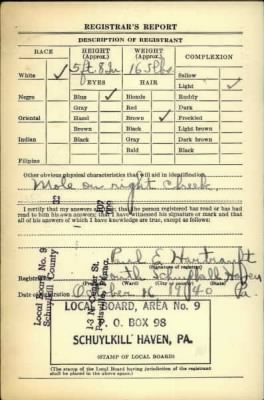 REGISTRAR'S REPORT
DESCRIPTION OF REGISTRANT
RACE
HEIGHT
(Approx.)
WEIGHT
(Approx.)
COMPLEXION
5 ft 8 In
165 lbs
White ✓
EYES
HAIR
Sallow
Light ✓
Negro
Blue ✓
Blonde
Ruddy
Gray
Red
Dark
Oriental
Hazel
Brown ✓
Freckled
Brown
Black
Light brown
Indian
Black
Gray
Dark brown
Bald
Black
Filipino
Other obvious physical characteristics that will aid in identification
Mole on right Cheek
I certify that my answers are true; that the person registered has read or has had
read to him his own answers; that I have witnessed his signature or mark and that
all of his answers of which I have knowledge are true, except as follows:
Paul E Hartranft
(Signature of registrar)
Registrar for
South Schuylkill Haven Pa.
(Ward)
(City or county)
(State)
October 16 1940
Local Board No. 9
Schuylkill County
LOCAL BOARD, AREA No. 9
P. O. BOX 98
SCHUYLKILL HAVEN, PA.
(STAMP OF LOCAL BOARD)
(The stamp of the Local Board having jurisdiction of the registrant
shall be placed in the above space.)